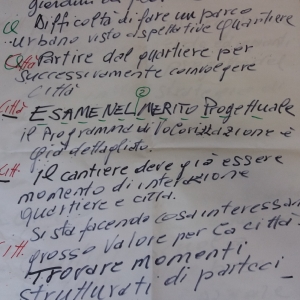 Difficoltà di fare un parco
urbano visto aspettative quartiere
Città Partire dal quartiere per
successivamente coinvolgere
città
2
Città ESAME NEL MERITO Progettuale
il Programma di localizzazione è
già dettagliato.
Citt. Il cantiere deve già essere
momento di interazione
quartiere e città.
Si sta facendo cosa interessan
Citt. grosso valore per la città
Trovare momenti
strutturati di parteci-